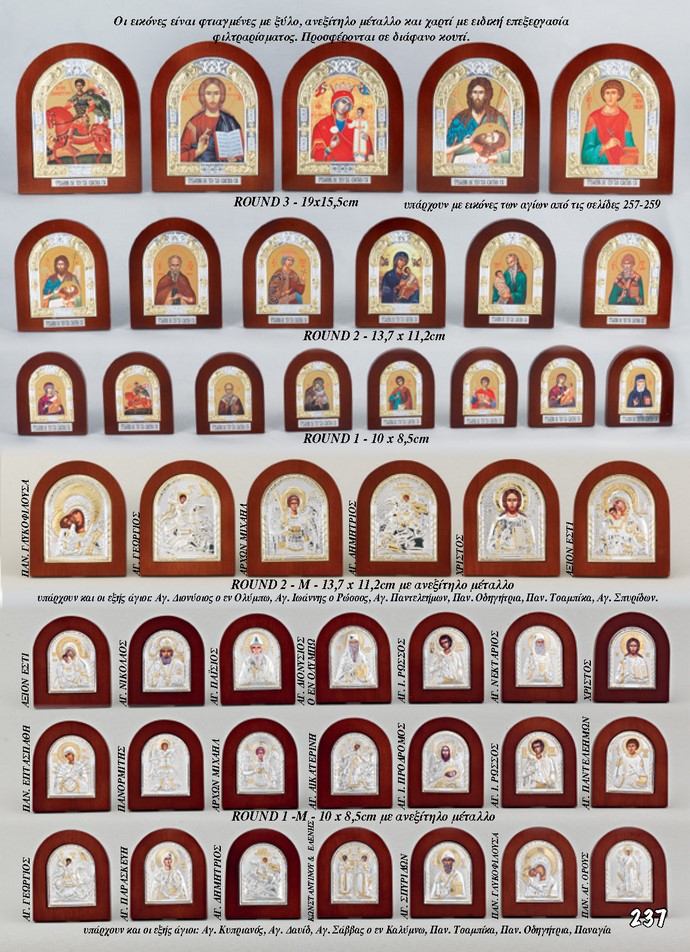 Οι εικόνες είναι φτιαγμένες με ξύλο, ανεξίτηλο μέταλλο και χαρτί με ειδική επεξεργασία
φιλτραρίσματος. Προσφέρονται σε διάφανο κουτί.
ROUND 3 - 19x15,5cm
υπάρχουν με εικόνες των αγίων από τις σελίδες 257-259
ROUND 2 - 13,7 x 11,2cm
ROUND 1 - 10 x 8,5cm
ΠΑΝ. ΓΛΥΚΟΦΙΛΟΥΣΑ
ΑΓ. ΓΕΩΡΓΙΟΣ
ΑΡΧΩΝ ΜΙΧΑΗΛ
ΑΓ. ΔΗΜΗΤΡΙΟΣ
ΧΡΙΣΤΟΣ
ΑΞΙΟΝ ΕΣΤΙ
ROUND 2 - M - 13,7 x 11,2cm με ανεξίτηλο μέταλλο
υπάρχουν και οι εξής άγιοι: Αγ. Διονύσιος ο εν Ολύμπω, Αγ. Ιωάννης ο Ρώσσος, Αγ. Παντελεήμων, Παν. Οδηγήτρια, Παν. Τσαμπίκα, Αγ. Σπυρίδων.
ΑΞΙΟΝ ΕΣΤΙ
ΑΓ. ΝΙΚΟΛΑΟΣ
ΑΓ. ΠΑΪΣΙΟΣ
ΑΓ. ΔΙΟΝΥΣΙΟΣ
Ο ΕΝ ΟΛΥΜΠΩ
ΑΓ. Ι. ΡΩΣΣΟΣ
ΑΓ. ΝΕΚΤΑΡΙΟΣ
ΧΡΙΣΤΟΣ
ΠΑΝ. ΕΠΤΑΣΠΑΘΗ
ΠΑΝΟΡΜΙΤΗΣ
ΑΡΧΩΝ ΜΙΧΑΗΛ
ΑΓ. ΑΙΚΑΤΕΡΙΝΗ
ΑΓ. Ι. ΠΡΟΔΡΟΜΟΣ
ΑΓ. Ι. ΡΩΣΣΟΣ
ΑΓ. ΠΑΝΤΕΛΕΗΜΩΝ
ROUND 1 -M - 10 x 8,5cm με ανεξίτηλο μέταλλο
ΑΓ. ΓΕΩΡΓΙΟΣ
ΑΓ. ΠΑΡΑΣΚΕΥΗ
ΑΓ. ΔΗΜΗΤΡΙΟΣ
ΚΩΝΣΤΑΝΤΙΝΟΥ & ΕΛΕΝΗΣ
ΑΓ. ΣΠΥΡΙΔΩΝ
ΠΑΝ. ΓΛΥΚΟΦΙΛΟΥΣΑ
ΠΑΝ. ΑΓ. ΟΡΟΥΣ
237
υπάρχουν και οι εξής άγιοι: Αγ. Κυπριανός, Αγ. Δαυίδ, Αγ. Σάββας ο εν Καλύμνω, Παν. Τσαμπίκα, Παν. Οδηγήτρια, Παναγία